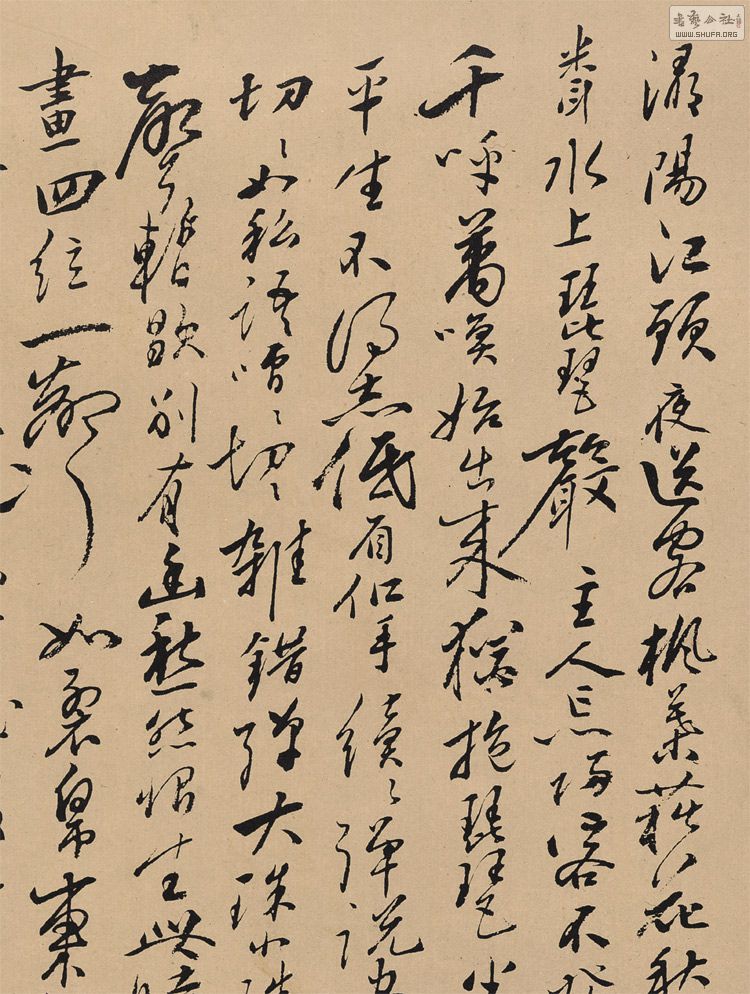 潯陽江頭夜送客楓葉荻花秋
水上琵琶聲主人忘歸客不發
千呼萬喚始出來猶抱琵琶半
平生不得志低眉信手續〻彈說盡
切〻如私語嘈〻切〻雜錯彈大珠小珠
聲暫歇別有幽愁恨生此時
畫四弦一聲如裂帛東
书艺公社
WWW.SHUFA.ORG